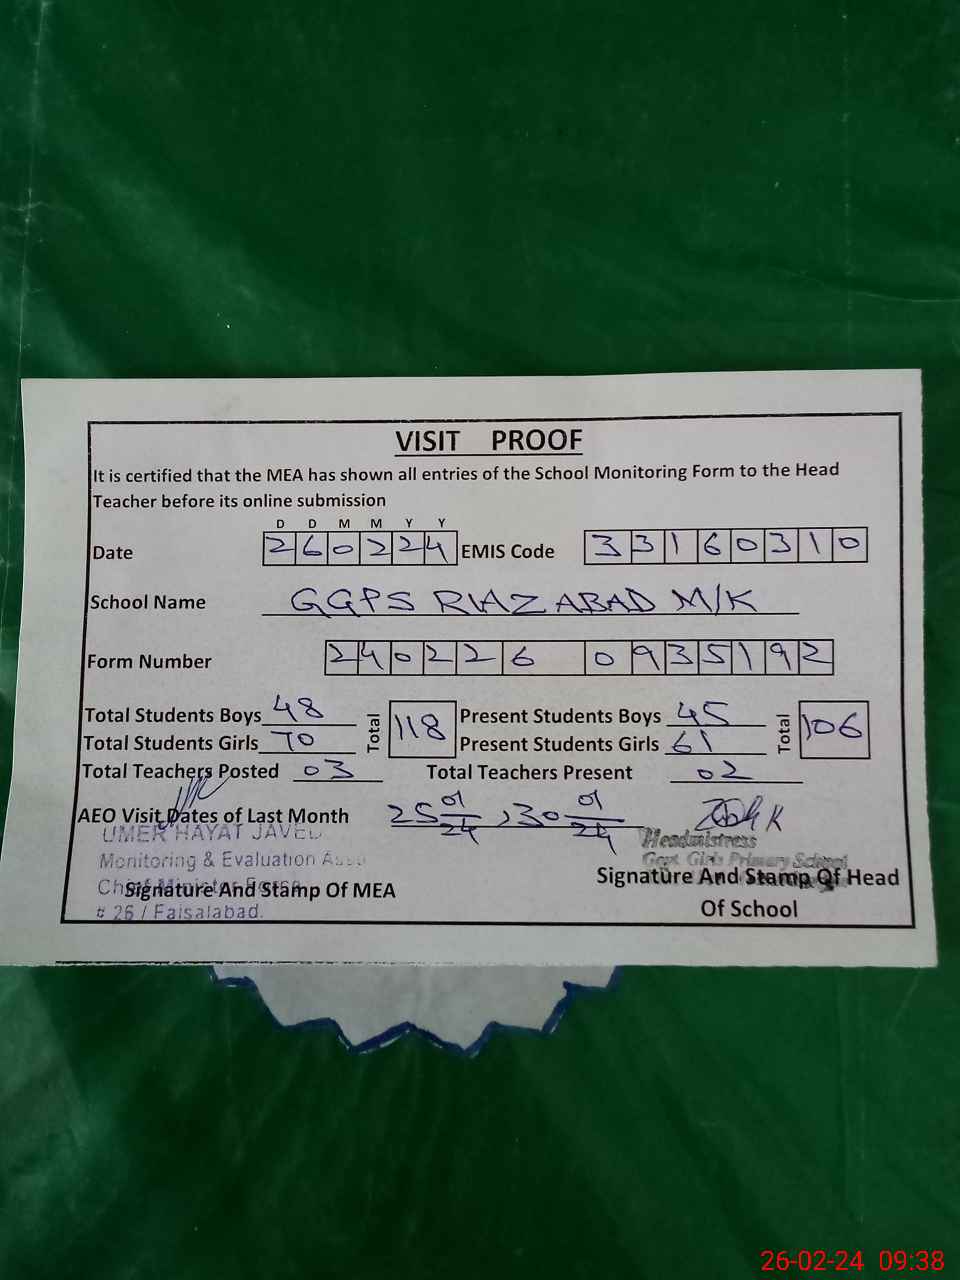 VISIT PROOF
It is certified that the MEA has shown all entries of the School Monitoring Form to the Head
Teacher before its online submission
D D M M Y Y
Date 260224 EMIS Code 33160310
School Name GGPS RIAZABAD M/K
Form Number 240226 0935192
Total Students Boys 48 Total 118 Present Students Boys 45 Total 106
Total Students Girls 70 Present Students Girls 61
Total Teachers Posted 03 Total Teachers Present 02
AEO Visit Dates of Last Month 25 01/24, 30 01/24
UMER HAYAT JAVED
Headmistress
Monitoring & Evaluation
Govt. Girls Primary School
Signature And Stamp Of MEA
Signature And Stamp Of Head
Of School
# 26 / Faisalabad.
26-02-24 09:38